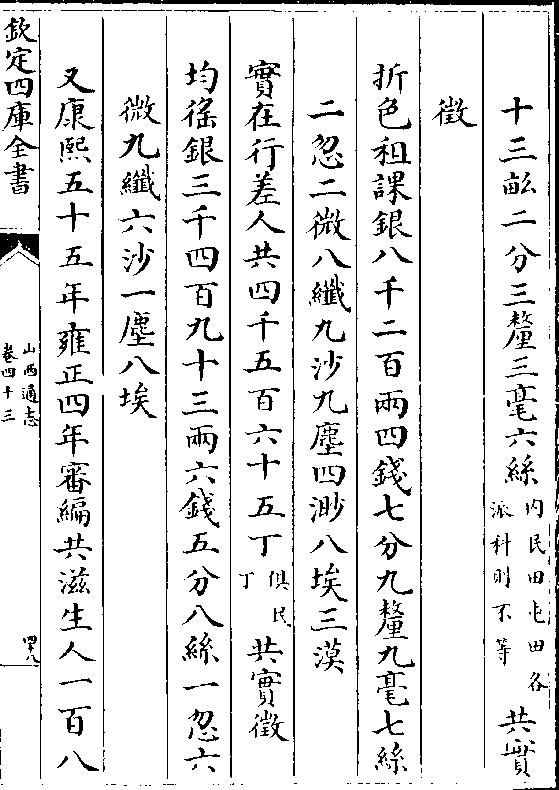 十三畝二分三釐三毫六絲内民田屯田各派科則不等共實
徵
折色租課銀八千二百兩四錢七分九釐九毫七絲
二忽二微八纖九沙九塵四渺八埃三漠
實在行差人共四千五百六十五丁俱民丁共實徵
均徭銀三千四百九十三兩六錢五分八絲一忽六
微九纖六沙一塵八埃
又康熙五十五年雍正四年審編共滋生人一百八
欽定四庫全書
山西通志
卷四十三
四八